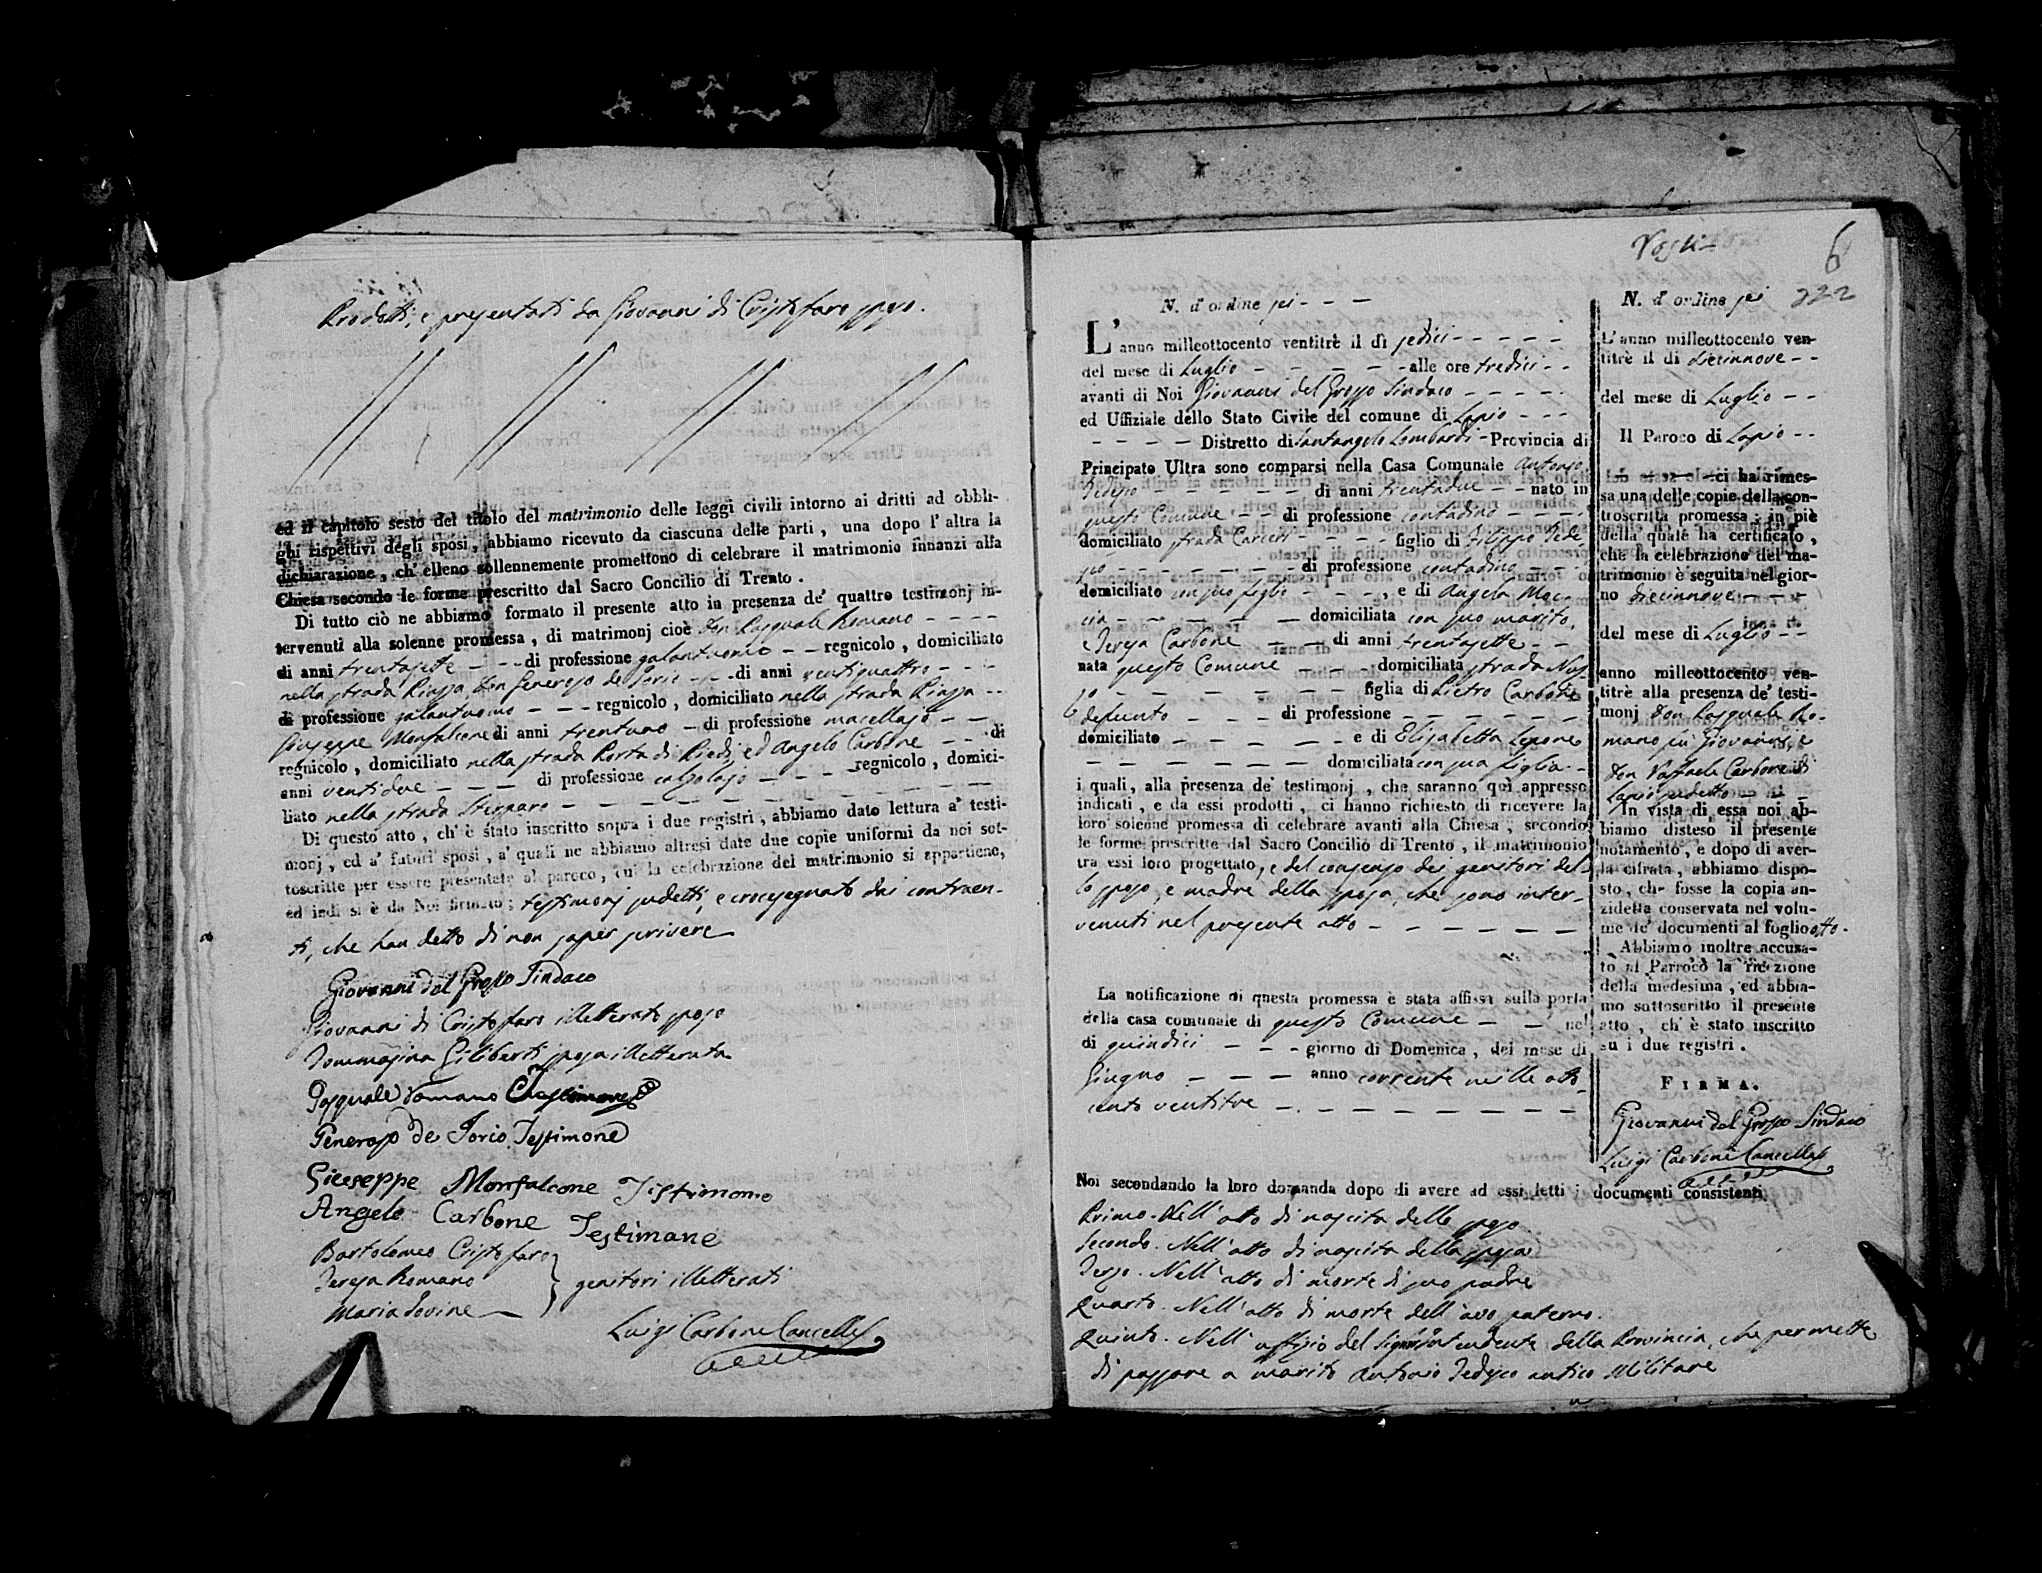 Prodotti, e presentati da Giovanni di Cristofaro sposo.
ed il capitolo sesto del titolo del matrimonio delle leggi civili intorno ai dritti ad obbli-
ghi rispettivi degli sposi, abbiamo ricevuto da ciascuna delle parti, una dopo l'altra la
dichiarazione, ch'elleno sollennemente promettono di celebrare il matrimonio innanzi alla
Chiesa secondo le forme prescritto dal Sacro Concilio di Trento.
Di tutto ciò ne abbiamo formato il presente atto in presenza de' quattro testimonj in-
tervenuti alla solenne promessa, di matrimonj cioè Don Pasquale Romano - - - -
di anni trentasette - - - di professione galantuomo - - regnicolo, domiciliato
nella strada Piazza Don Generoso de Iorio - - - di anni ventiquattro - - -
di professione galantuomo - - - regnicolo, domiciliato nella strada Piazza - -
Giuseppe Monfalcone di anni trentuno - di professione macellajo - -
regnicolo, domiciliato nella strada Porta di Piedi, ed Angelo Carbone - - - di
anni ventidue - - - di professione calzolajo - - - - regnicolo, domici-
liato nella strada Stirparo - - - - - - - - -
Di questo atto, ch'è stato inscritto sopra i due registri, abbiamo dato lettura a' testi-
monj, ed a' futuri sposi, a' quali ne abbiamo altresi date due copie uniformi da noi sot-
toscritte per essere presentate al paroco, cui la celebrazione del matrimonio si appartiene,
ed indi si è da Noi firmato; testimonj sudetti, e crocesegnato dai contraen-
ti, che han detto di non saper scrivere
Giovanni del Grosso Sindaco
Giovanni di Cristofaro illetterato sposo
Tommasina Giliberti sposa illetterata
Pasquale Romano Testimone
Generoso de Iorio Testimone
Giuseppe Monfalcone Testimone
Angelo Carbone Testimone
Bartolomeo Cristofaro
Teresa Romano
Maria Iovine
genitori illetterati
Luigi Carbone Cancelle
6
222
N. d'ordine sei - - -
L'anno milleottocento ventitrè il dì sedici - - - - -
del mese di Luglio - - - - - - alle ore tredici - -
avanti di Noi Giovanni del Grosso Sindaco - - - - -
ed Uffiziale dello Stato Civile del comune di Lapio - - -
- - - - Distretto di Santangelo Lombardi - Provincia di
Principato Ultra sono comparsi nella Casa Comunale Antonio
Tedesco - - - - - - di anni trentadue - - nato in
questo Comune - - di professione contadino - - -
domiciliato strada Carceri - - - - figlio di Filippo Tede
sco - - - - - - - di professione contadino - - -
domiciliato con suo figlio - - - -, e di Angela Mac-
cia - - - - - - domiciliata con suo marito,
e Teresa Carbone - - - di anni trentasette - -
nata questo Comune - - - - domiciliata strada
- - - - - - - figlia di Pietro Carbone
defunto - - - di professione - - - - - -
domiciliato - - - - - - e di Elisabetta Lepore
- - - - - - - domiciliata con sua figlia - -
i quali, alla presenza de' testimonj, che saranno quì appresso
indicati, e da essi prodotti, ci hanno richiesto di ricevere la
loro solenne promessa di celebrare avanti alla Chiesa, secondo
le forme prescritte dal Sacro Concilio di Trento, il matrimonio
tra essi loro progettato, e del consenso dei genitori del-
lo sposo, e madre della sposa, che sono inter-
venuti nel presente atto - - - - - -
La notificazione di questa promessa è stata affissa sulla porta
della casa comunale di questo Comune - - nel
di quindici - - - giorno di Domenica, del mese di
Giugno - - - anno corrente mille otto-
cento ventitre - - - - - - - - -
Noi secondando la loro domanda dopo di avere ad essi letti i documenti consistenti
Primo. Nell'atto di nascita dello sposo
Secondo. Nell'atto di nascita della sposa
Terzo. Nell'atto di morte di suo padre
Quarto. Nell'atto di morte dell'avo paterno.
Quinto. Nell'uffizio del Signor Intendente della Provincia, che permette
di passare a marito Antonio Tedesco antico Militare
N. d'ordine sei
L'anno milleottocento ven-
titrè il di diecinnove - -
del mese di Luglio - -
Il Paroco di Lapio - -
ci ha rimes-
sa una delle copie della con-
troscritta promessa; in piè
della quale ha certificato,
che la celebrazione del ma-
trimonio è seguita nel gior-
no diecinnove - - -
del mese di Luglio - -
anno milleottocento ven-
titrè alla presenza de' testi-
monj Don Pasquale Ro-
mano fu Giovanni, e
Don Raffaele Carbone di
Lapio sudetto - - -
In vista di essa noi ab-
biamo disteso il presente
notamento, e dopo di aver-
la cifrata, abbiamo dispo-
sto, che fosse la copia an-
zidetta conservata nel volu-
me de' documenti al foglio otto.
Abbiamo inoltre accusa-
to al Parroco la ricezione
della medesima, ed abbia-
mo sottoscritto il presente
atto, ch'è stato inscritto
su i due registri.
FIRMA.
Giovanni del Grosso Sindaco
Luigi Carbone Cancelle